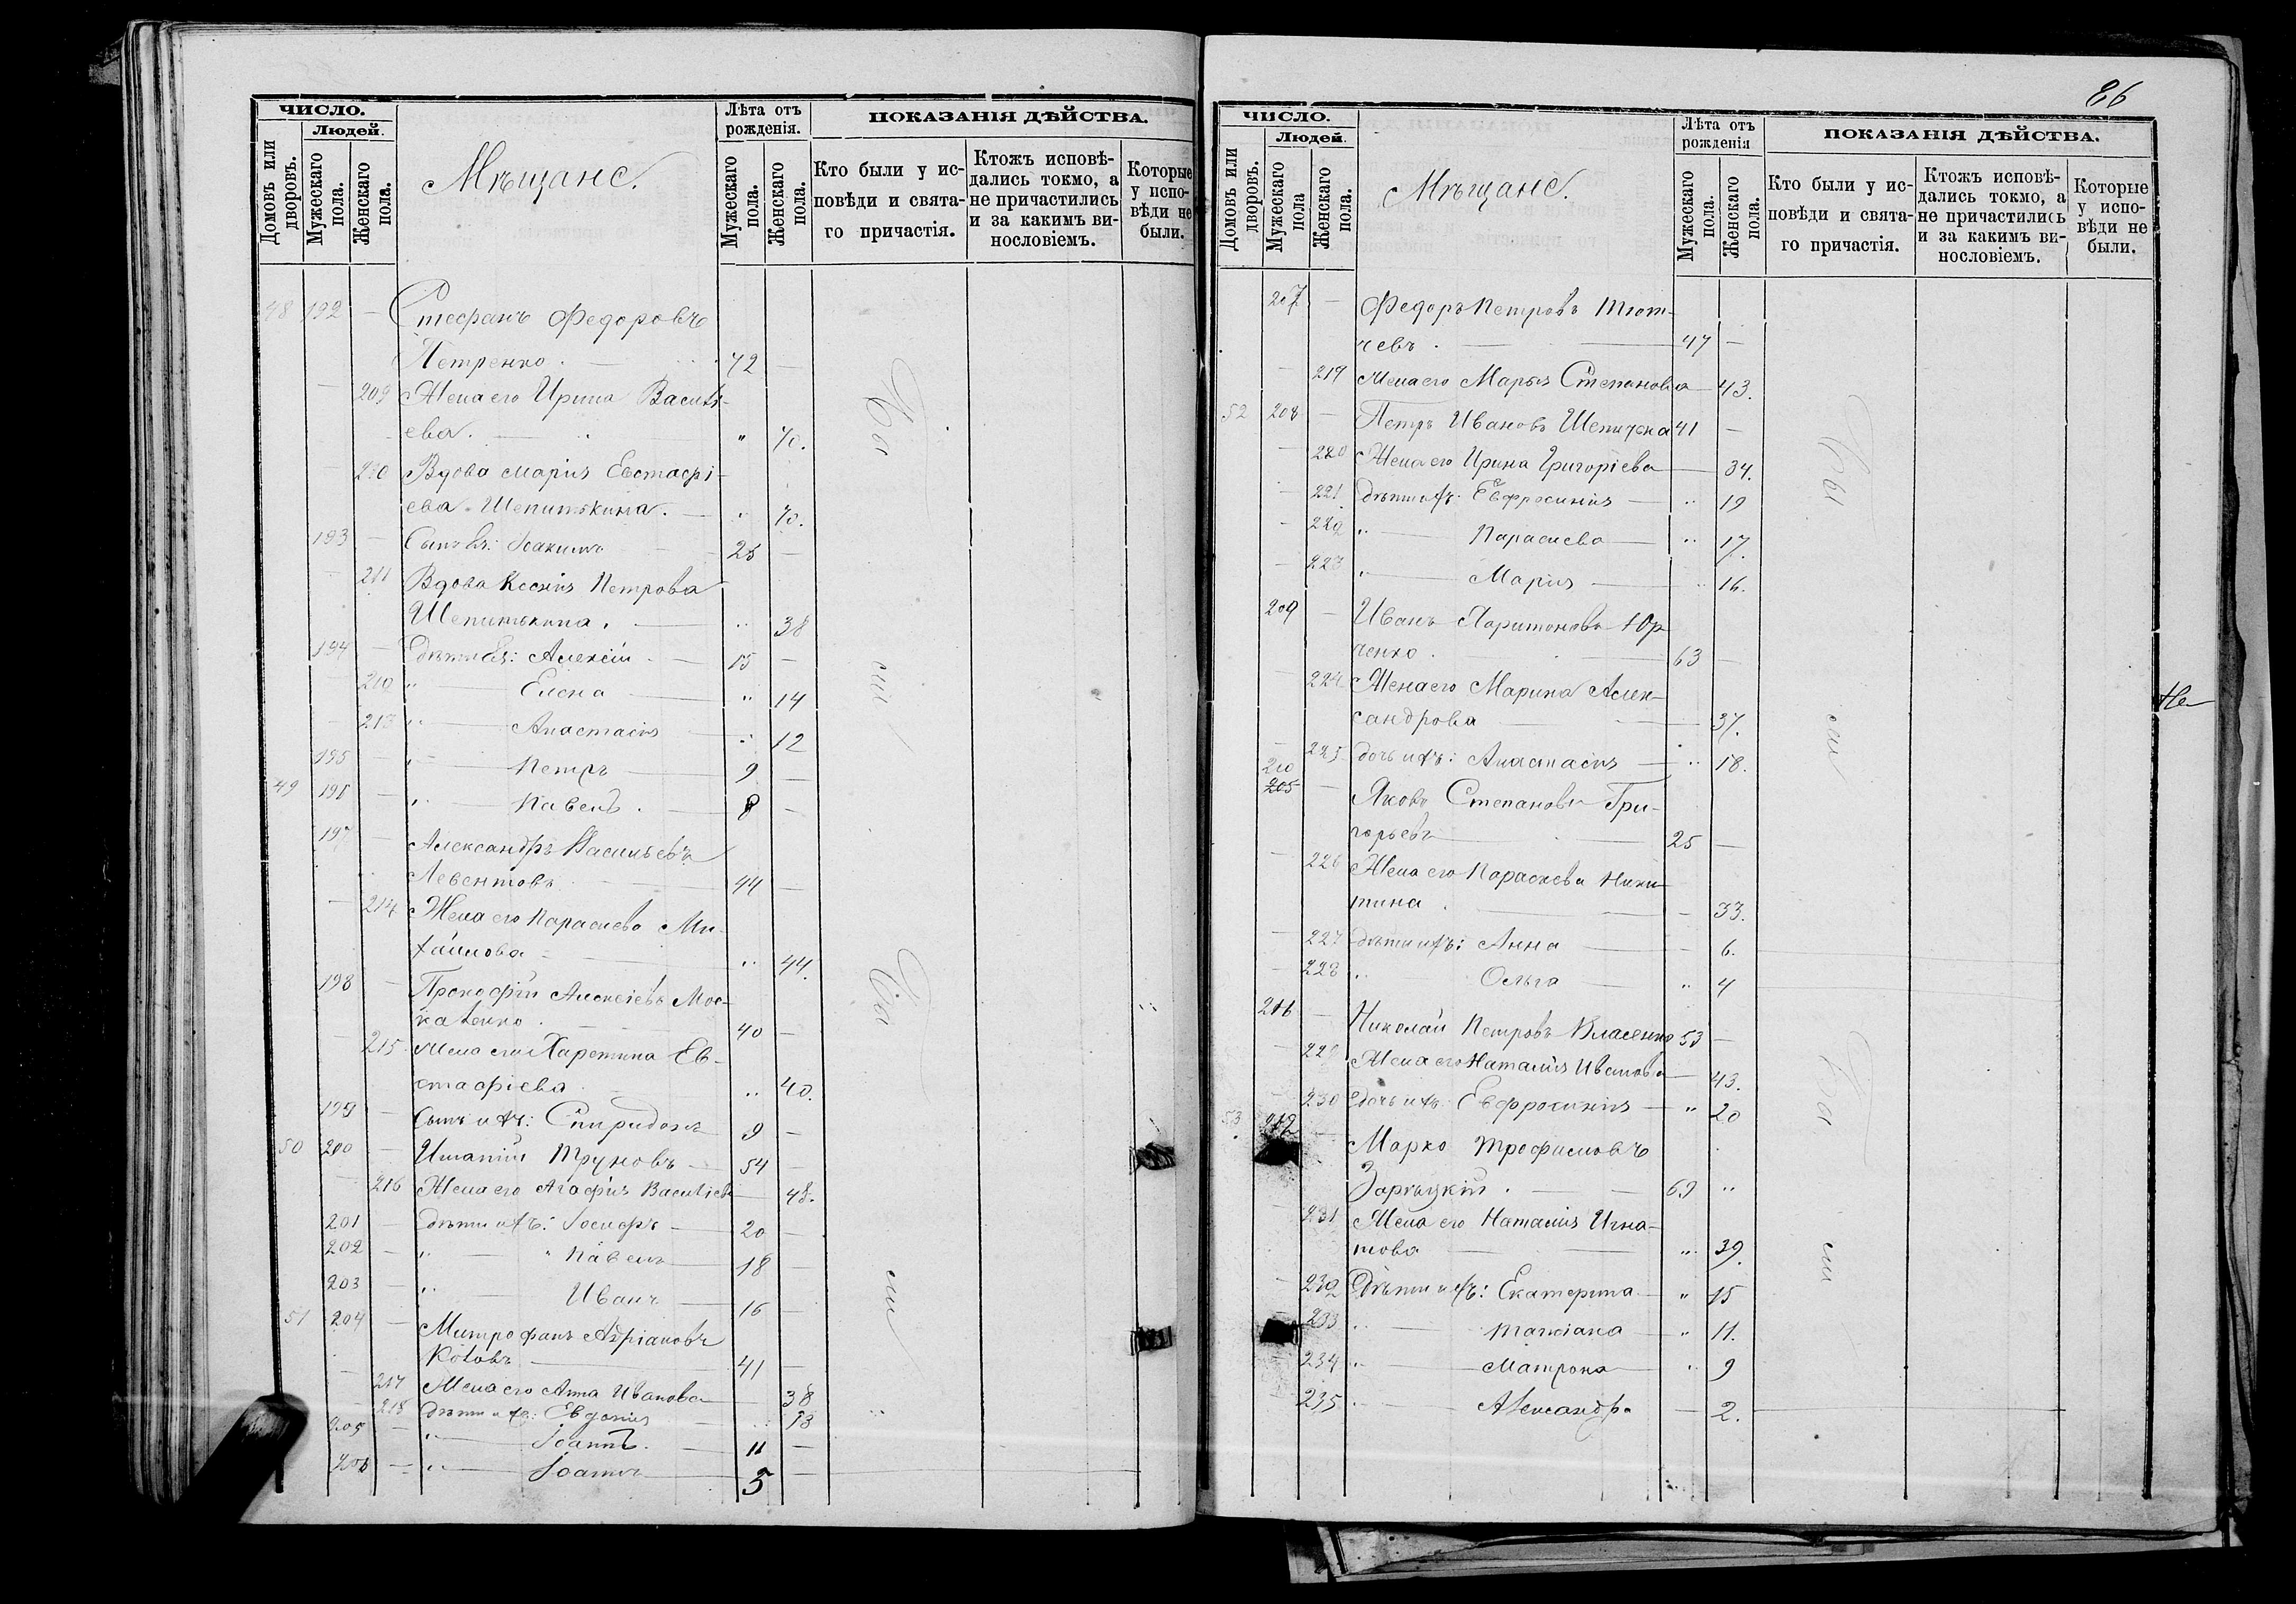 ЧИСЛО.
Людей.
Домовъ или дворовъ.
Мужескаго пола.
Женскаго пола.
Мѣщане.
Лѣта отъ рожденія.
Мужескаго пола.
Женскаго пола.
ПОКАЗАНІЯ ДѢЙСТВА.
Кто были у ис-
повѣди и свята-
го причастія.
Ктожъ исповѣ-
дались токмо, а
не причастились
и за какимъ ви-
нословіемъ.
Которые
у испо-
вѣди не
были.
48 192 — Стефанъ Федоровъ
Петренко. 72 —
209 Жена его Ирина Василі-
ева. " 70.
210 Вдова Марія Евстафі-
ева Шепитькина. " 70.
193 — Сынъ ея: Іоакимъ 25 —
211 Вдова Ксенія Петрова
Шепитькина. " 38
194 — Дѣти ея: Алексій 15 —
212 " Елена " 14
213 " Анастасія " 12
195 — " Петръ 9 —
49 196 — " Павелъ. 8 —
197 — Александръ Васильевъ
Левентовъ 44 —
214 Жена его Параскева Ми-
хайлова " 44.
198 — Прокофій Алексіевъ Мос-
каленко. 40 —
215 Жена его Харетина Ев-
стафіева " 40.
199 — Сынъ ихъ: Спиридонъ 9 —
50 200 — Игнатій Труновъ 54 —
216 Жена его Агафія Василіев 48.
201 — Дѣти ихъ: Іосифъ 20 —
202 — " Павелъ 18 —
203 — " Иванъ 16 —
51 204 — Митрофанъ Адріановъ
Котовъ 41 —
217 Жена его Анна Иванова — 38
218 Дѣти ихъ: Евдокія 13
205 — " Іоаннъ. 11 —
206 — " Іоаннъ 5 —
Бы
ли
Бы
ли
86
ЧИСЛО.
Людей.
Домовъ или дворовъ.
Мужескаго пола
Женскаго пола.
Мѣщане.
Лѣта отъ рожденія
Мужескаго пола.
Женскаго пола.
ПОКАЗАНІЯ ДѢЙСТВА.
Кто были у ис-
повѣди и свята-
го причастія.
Ктожъ исповѣ-
дались токмо, а
не причастились
и за какимъ ви-
нословіемъ.
Которые
у испо-
вѣди не
были.
207 — Федоръ Петровъ Тют-
чевъ. 47 —
219 Жена его Марья Степанова — 43.
52 208 — Петръ Ивановъ Шепитька 41 —
220 Жена его Ирина Григоріева — 34.
221 Дѣти ихъ: Евфросинія " 19
222 " Параскева " 17.
223 " Марія " 16.
209 — Иванъ Харитоновъ Юр-
ченко. 63 —
224 Жена его Марина Алек-
сандрова — 37.
225 Дочь ихъ: Анастасія " 18.
210
205 — Яковъ Степановъ Гри-
горьевъ 25 —
226 Жена его Параскева Ники-
тина. — 33.
227 Дѣти ихъ: Анна — 6.
228 " Ольга " 4
211 — Николай Петровъ Власенко 53 —
229 Жена его Наталія Иванова — 43.
230 Дочь ихъ: Евфросинія " 20
53 212 — Марко Трофимовъ
Зарѣцкій. 69 "
231 Жена его Наталія Игна-
това " 39.
232 Дѣти ихъ: Екатерина " 15
233 " Татіана " 11.
234 " Матрона " 9
235 " Александра — 2.
Бы
ли
Бы
ли
Не